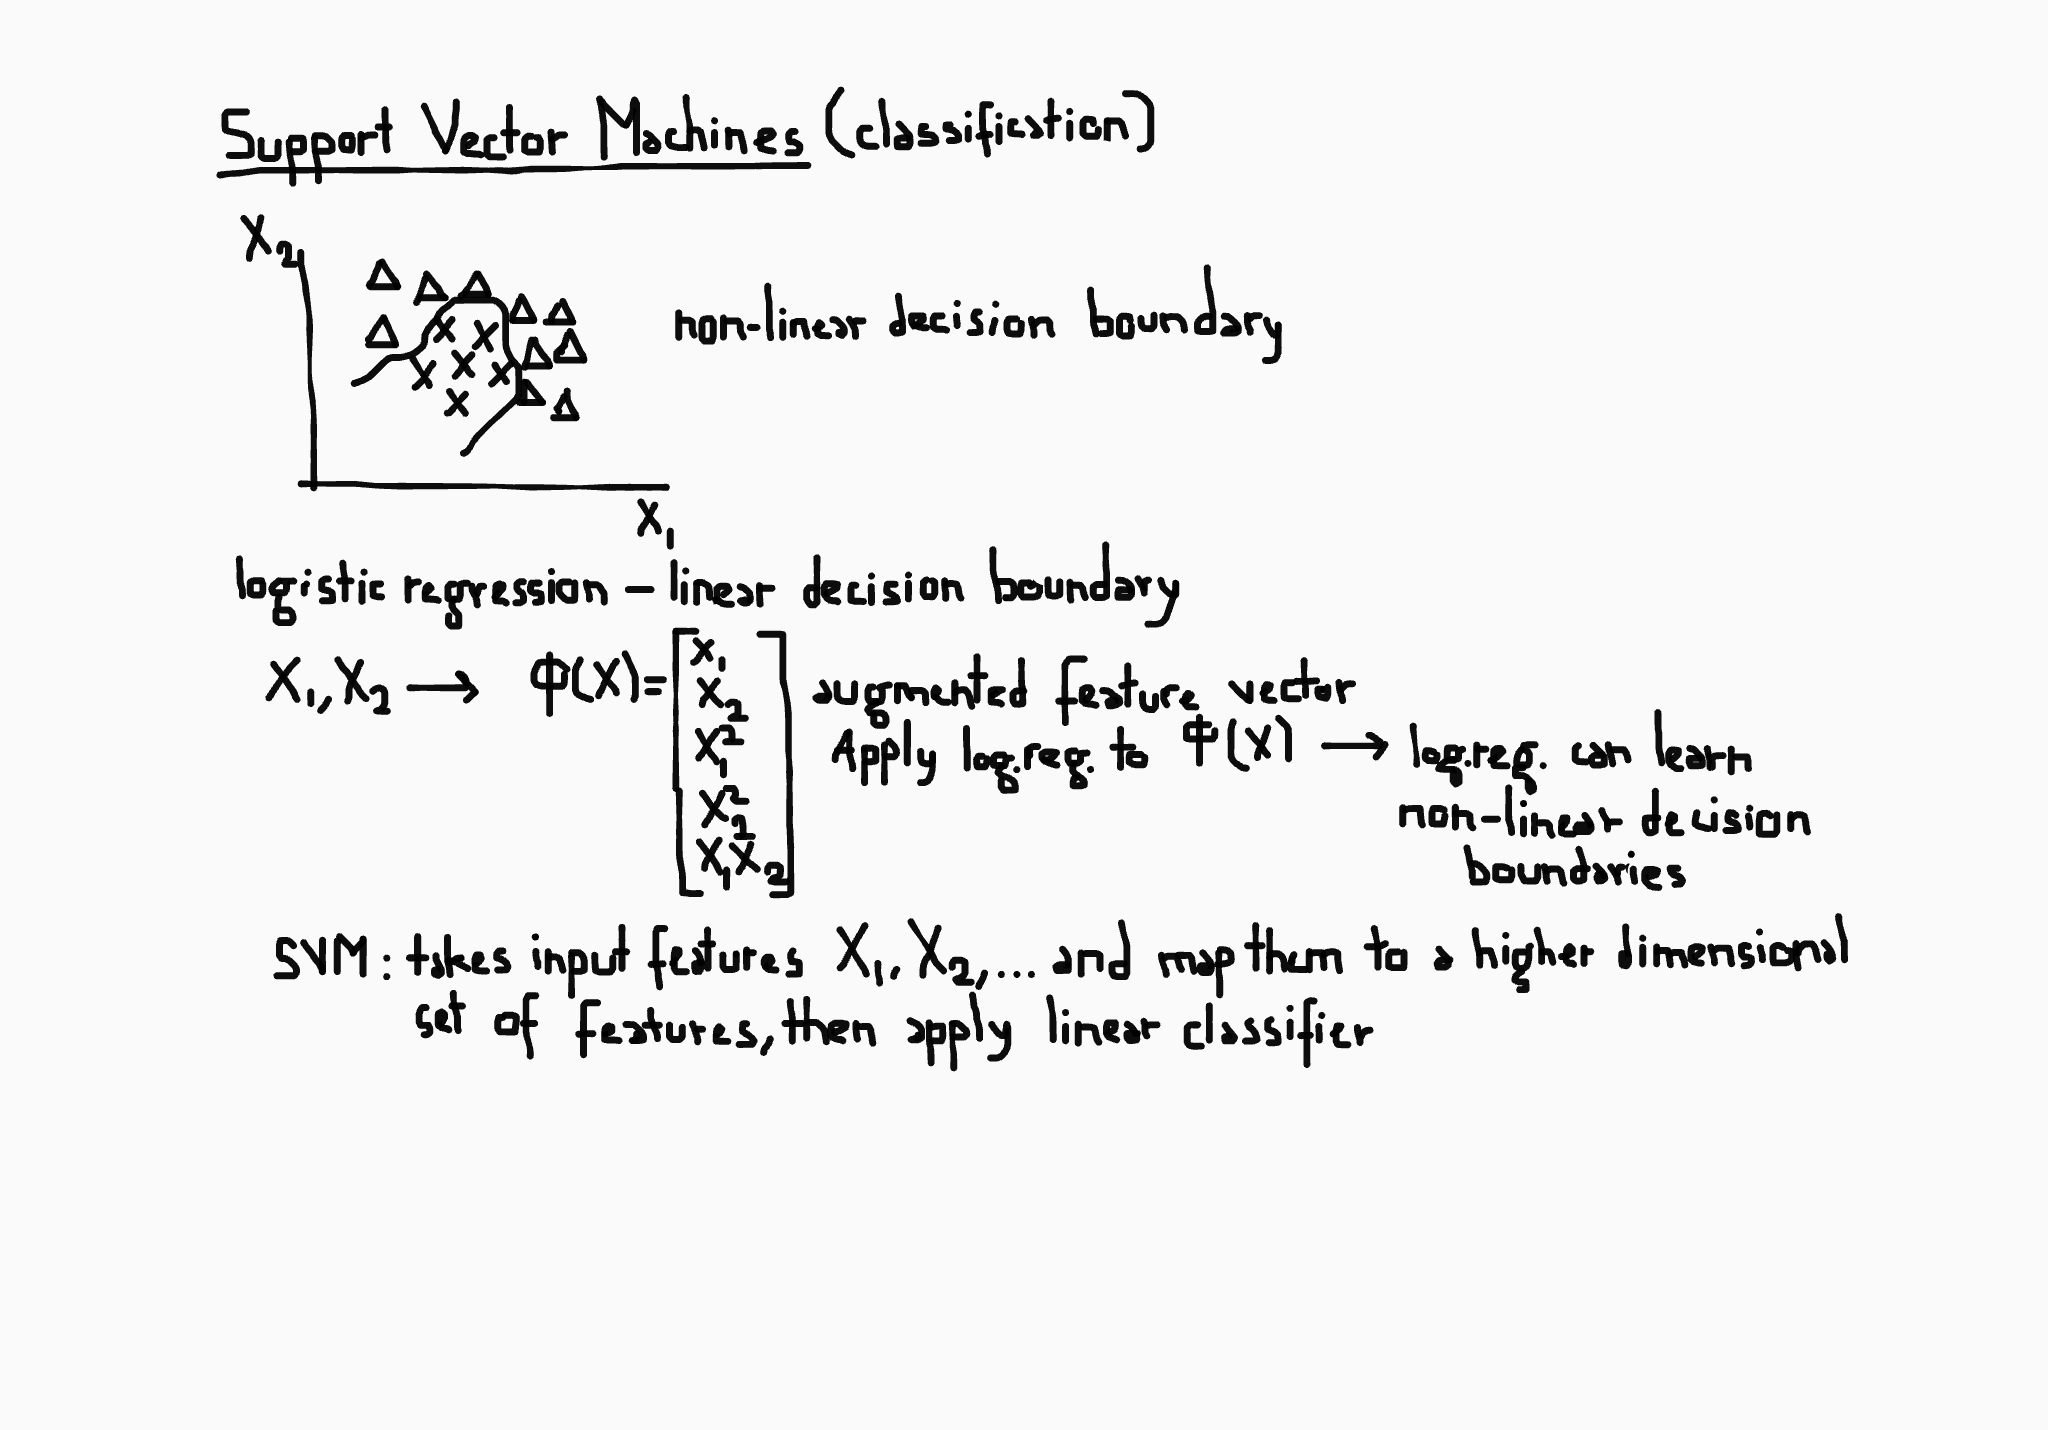 Support Vector Machines (classification)
X₂
non-linear decision boundary
X₁
logistic regression – linear decision boundary
X₁, X₂ → Φ(X) = [x₁ x₂ x₁² x₂² x₁x₂] augmented feature vector
Apply log.reg. to Φ(X) → log.reg. can learn
non-linear decision
boundaries
SVM: takes input features X₁, X₂, ... and map them to a higher dimensional
set of features, then apply linear classifier